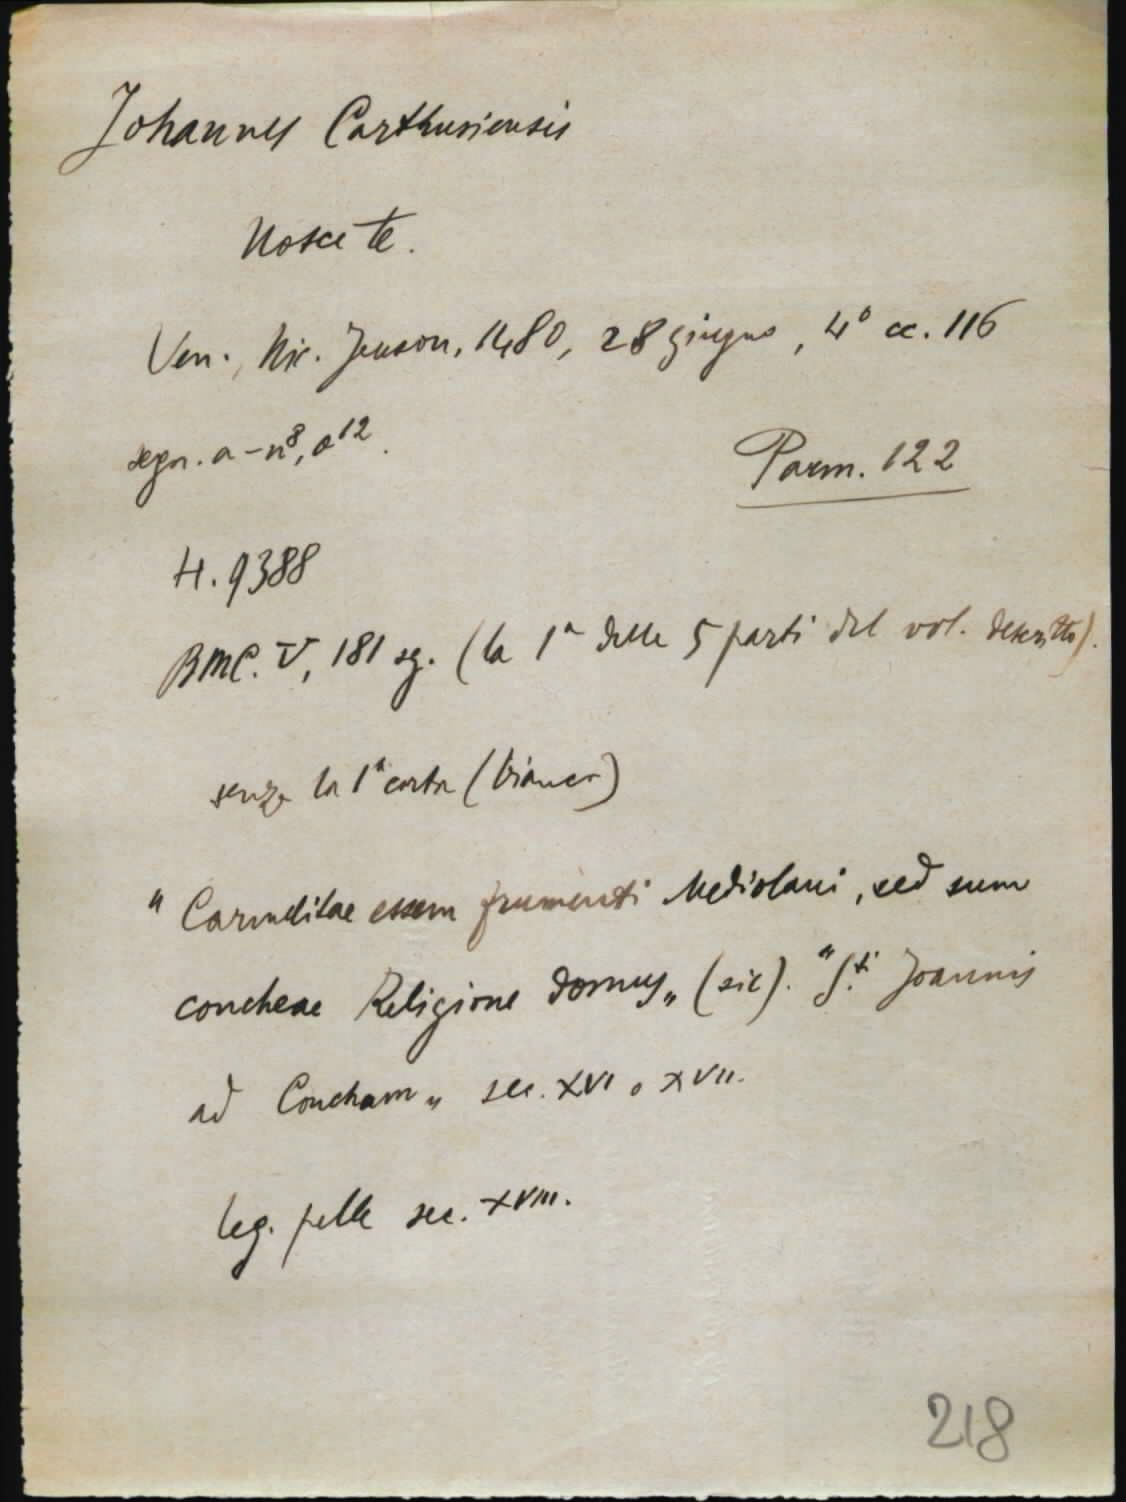 Johannes Carthusiensis
Nosce te.
Ven., Nic. Jenson, 1480, 28 giugno, 4° cc. 116
segn. a-n⁸, o¹².
Parm. 122
H. 9388
BMC. V, 181 sg. (la 1ª delle 5 parti del vol. descritto).
senza la 1ª carta (bianca)
" Carmelitae essem frumenti Mediolani, sed sum
concheae Religione domus „ (sic). " S.ti Joannis
ad Concham „ sec. XVI o XVII.
leg. pelle sec. XVIII.
218